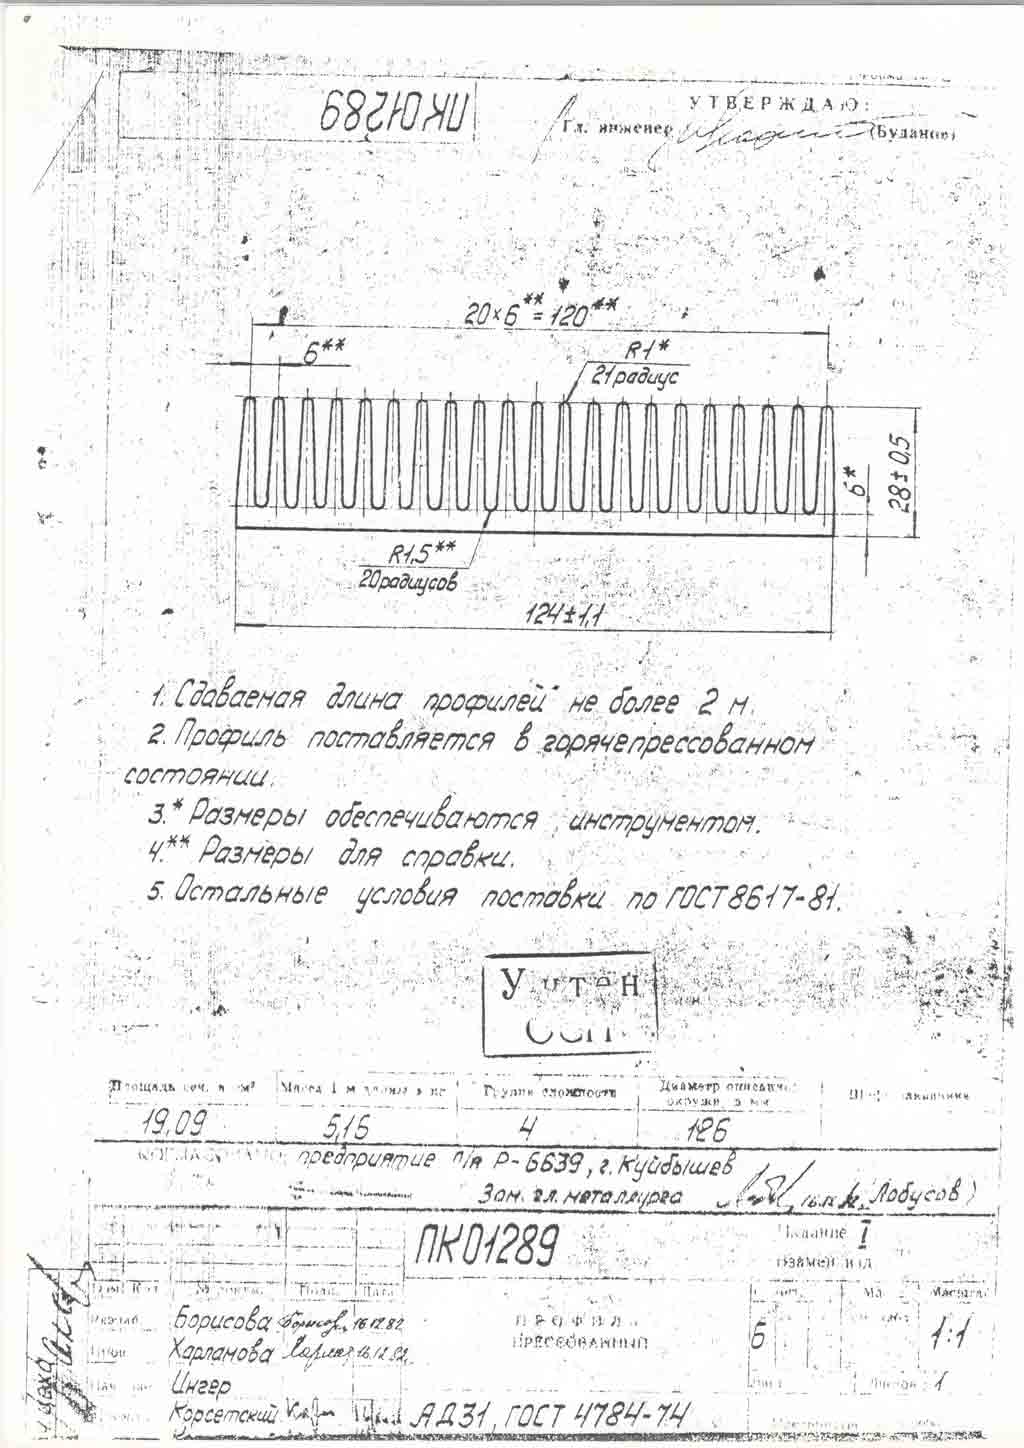 ПК01289
УТВЕРЖДАЮ:
Гл. инженер (Буданов)
20×6**=120**
6**
R1*
21 радиус
6*
28±0,5
R1,5**
20 радиусов
124±1,1
1. Сдаваемая длина профилей не более 2 м.
2. Профиль поставляется в горячепрессованном
состоянии.
3.* Размеры обеспечиваются инструментом.
4.** Размеры для справки.
5. Остальные условия поставки по ГОСТ 8617-81.
Учтен
Площадь сеч. в см² Масса 1 м длины в кг Группа сложности Диаметр описанной
окружн. в мм
19,09 5,16 4 126
СОГЛАСОВАНО: предприятие п/я Р-6639, г. Куйбышев
Зам. гл. металлурга (Лобусов)
ПК01289
Издание I
Взамен изд.
Масштаб
Борисова 16.12.82
ПРОФИЛЬ
ПРЕССОВАННЫЙ
Б 1:1
Харламова 16.12.82
Ингер
Лист Листов 1
Корсетский
АД31, ГОСТ 4784-74